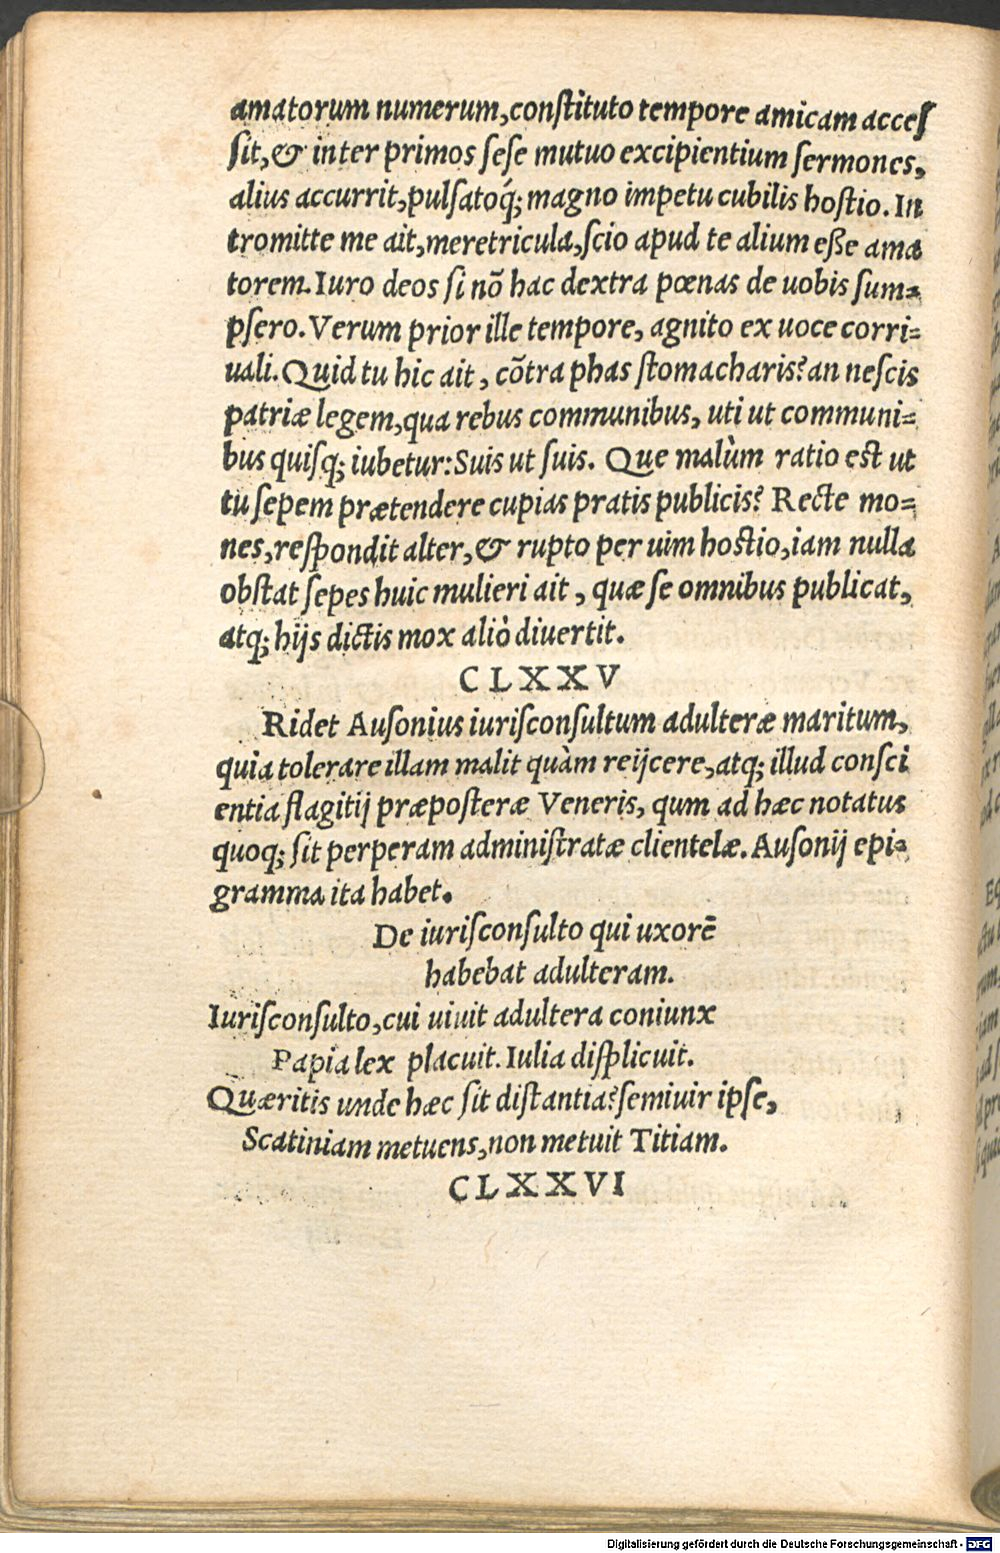 amatorum numerum, constituto tempore amicam acceſ
ſit, & inter primos ſeſe mutuo excipientium ſermones,
alius accurrit, pulſatoq́; magno impetu cubilis hoſtio. In
tromitte me ait, meretricula, ſcio apud te alium eſſe ama
torem. Iuro deos ſi nō hac dextra pœnas de uobis ſum⸗
pſero. Verum prior ille tempore, agnito ex uoce corri⸗
uali. Quid tu hic ait, cōtra phas ſtomacharis? an neſcis
patriæ legem, qua rebus communibus, uti ut communi⸗
bus quiſq; iubetur: Suis ut ſuis. Que malùm ratio eſt ut
tu ſepem prætendere cupias pratis publicis? Recte mo⸗
nes, reſpondit alter, & rupto per uim hoſtio, iam nulla
obſtat ſepes huic mulieri ait, quæ ſe omnibus publicat,
atq; hijs dictis mox aliò diuertit.
CLXXV
Ridet Auſonius iuriſconſultum adulteræ maritum,
quia tolerare illam malit quàm reijcere, atq; illud conſci
entia flagitij præpoſteræ Veneris, qum ad hæc notatus
quoq; ſit perperam adminiſtratæ clientelæ. Auſonij epi⸗
gramma ita habet.
De iuriſconſulto qui uxorē
habebat adulteram.
Iuriſconſulto, cui uiuit adultera coniunx
Papia lex placuit. Iulia diſplicuit.
Quæritis unde hæc ſit diſtantia? ſemiuir ipſe,
Scatiniam metuens, non metuit Titiam.
CLXXVI
Digitalisierung gefördert durch die Deutsche Forschungsgemeinschaft - DFG